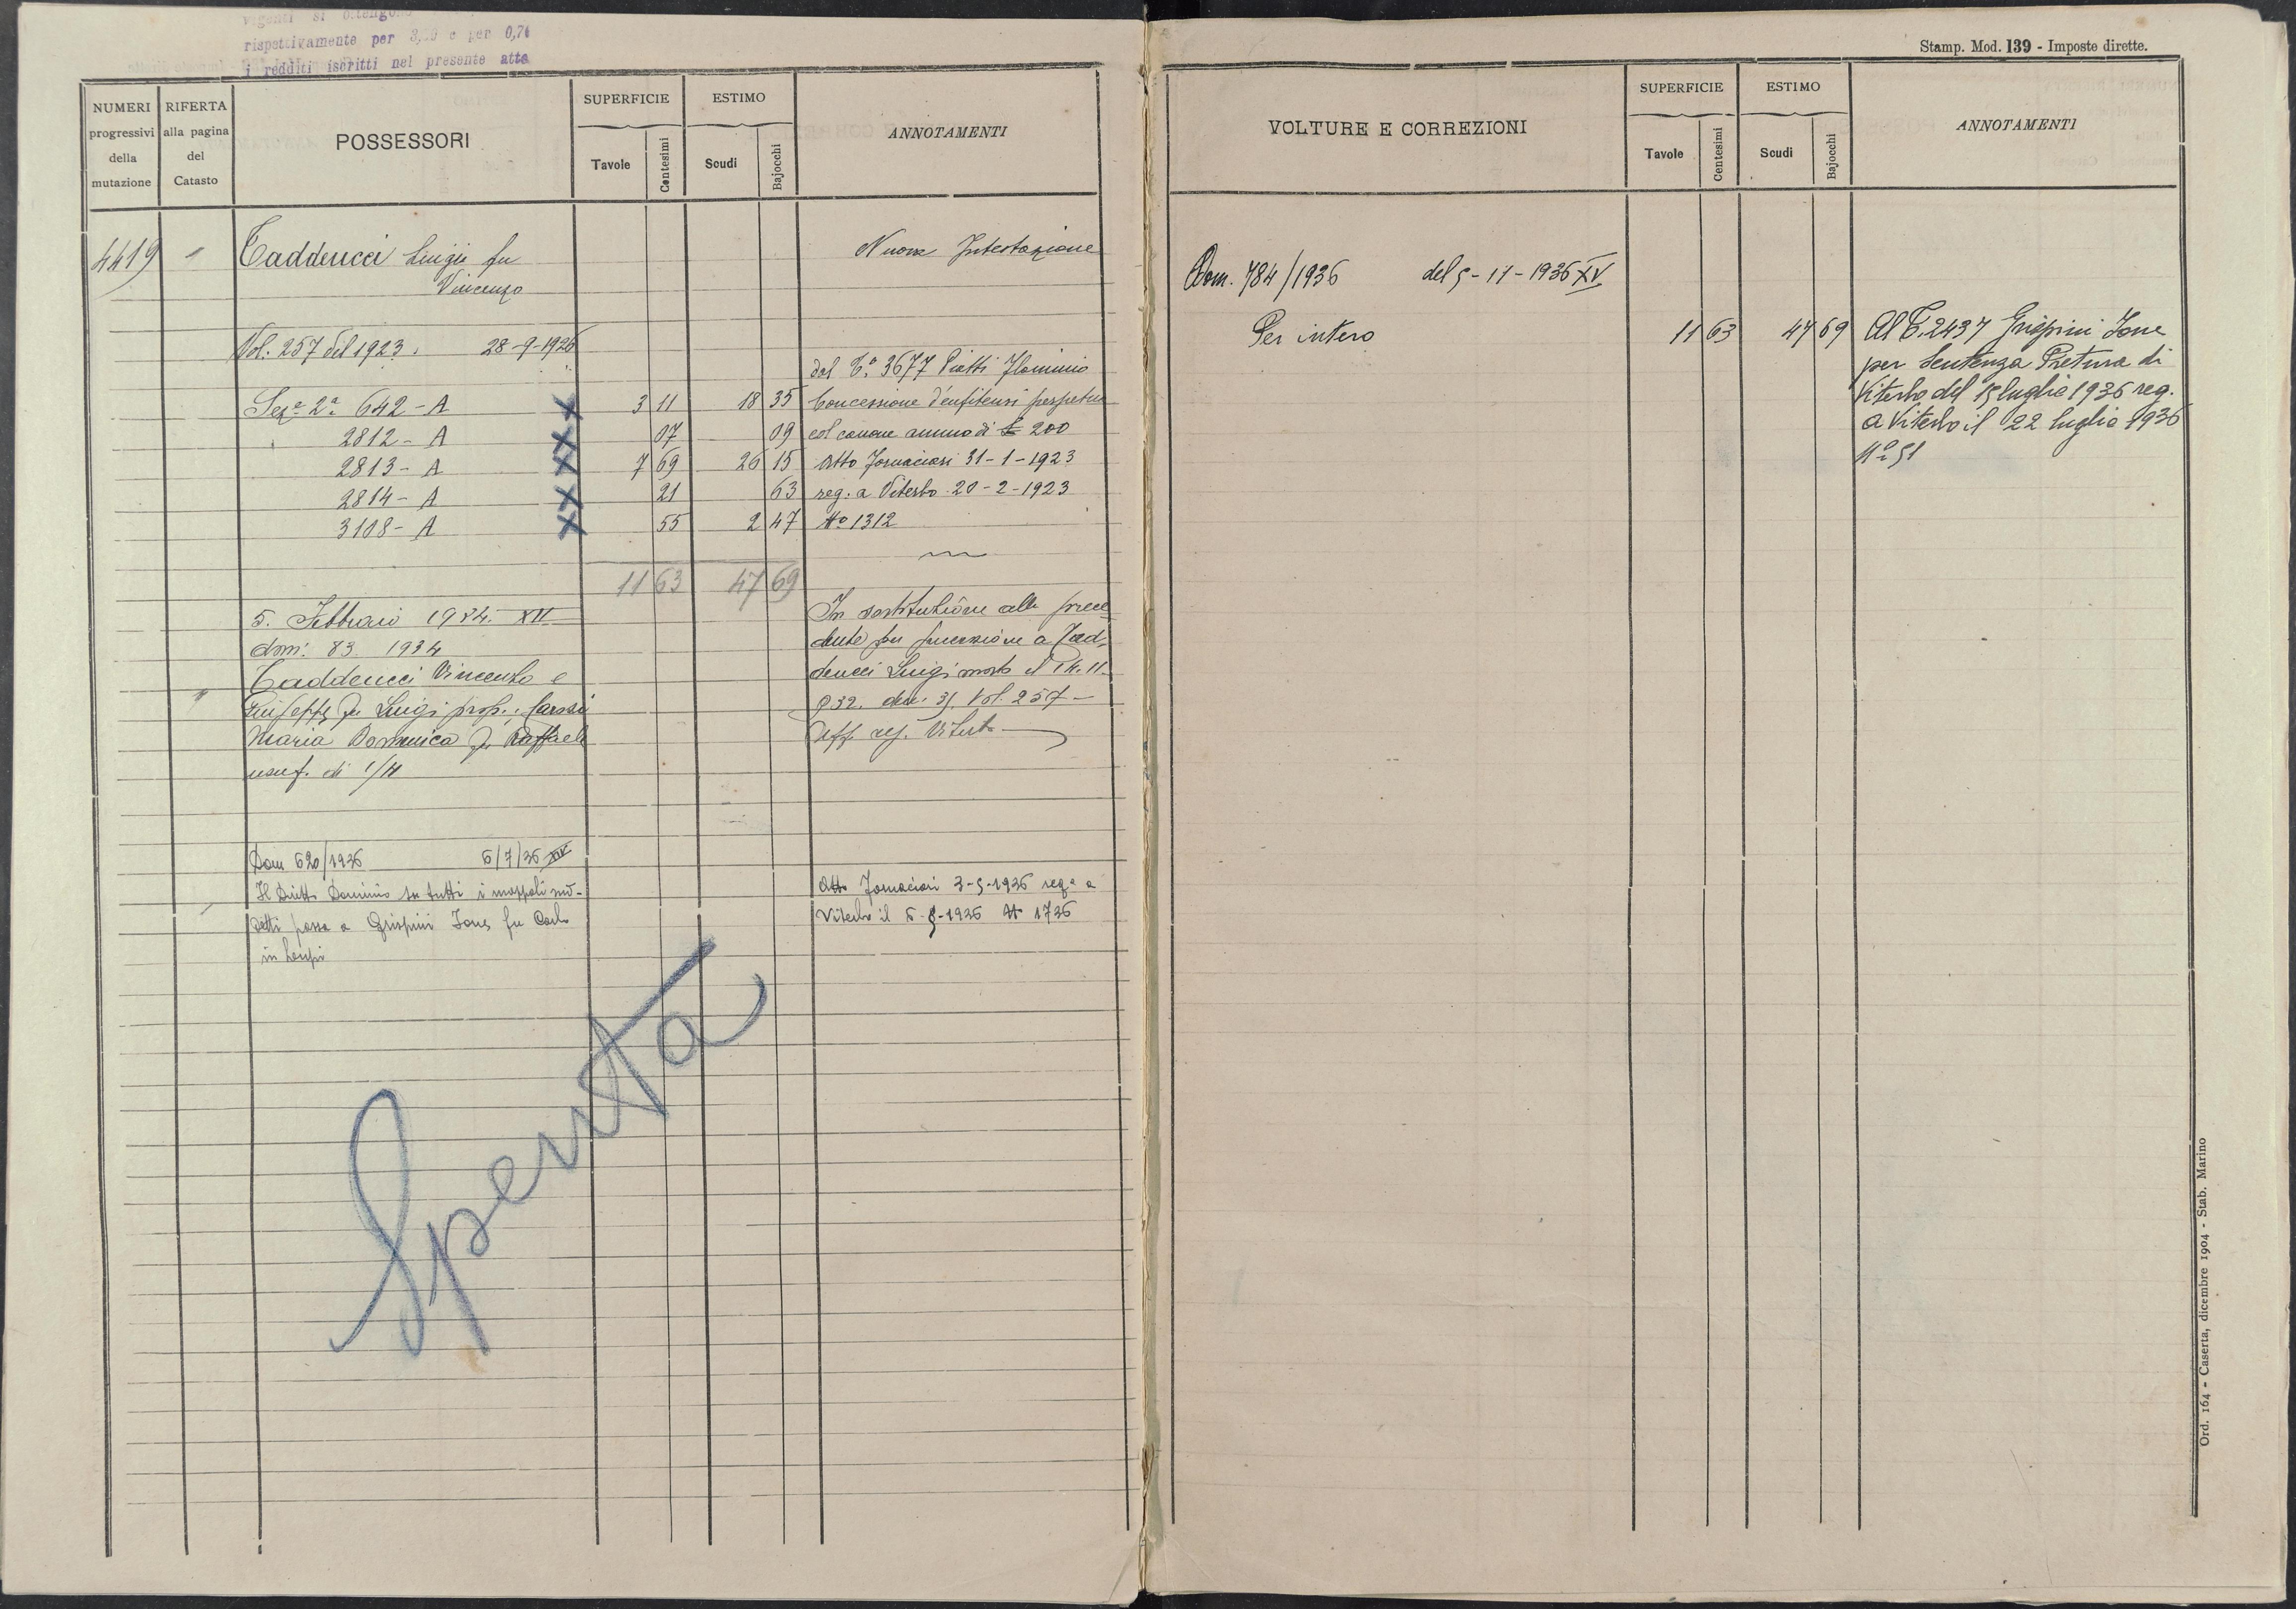 vigenti si ottengono
rispettivamente per e per 0,71
i redditi iscritti nel presente atto
NUMERI progressivi della mutazione
RIFERTA alla pagina del Catasto
POSSESSORI
SUPERFICIE
Tavole Centesimi
ESTIMO
Scudi Bajocchi
ANNOTAMENTI
4419 " Taddeucci Luigi fu
Vincenzo
Nuova Intestazione
Vol. 257 del 1923. 28-9-1926
dal C.° 3677 Piatti Flaminio
Seze 2a 642-A X 3 11 18 35 Concessione d'enfiteusi perpetua
2812-A X 07 09 col canone annuo di £ 200
2813-A X 7 69 26 15 Atto Fornaciari 31-1-1923
2814-A X 21 63 reg. a Viterbo 20-2-1923
3108-A X 55 2 47 No 1312
11 63 47 69
5. Febbraio 1934. XII
dom: 83. 1934
" Taddeucci Vincenzo e
Giuseppe fu Luigi prop.;
Maria Domenica fu Raffaele
usuf. di 1/4
In sostituzione alla prece
dente per successione a Tad.
deucci Luigi morto il 14.11.
932. den. 31. Vol. 257 —
Uff. reg. Viterbo —
Dom 620/1936 6/7/36 XIV
Il Diretto Dominio su tutti i mappali sud-
detti passa a Grispini Ione fu Carlo
in
Atto Fornaciari 3-5-1936 rega a
Viterbo il 5-1936 N 1726
Spenta
Stamp. Mod. 139 - Imposte dirette.
VOLTURE E CORREZIONI
SUPERFICIE
Tavole Centesimi
ESTIMO
Scudi Bajocchi
ANNOTAMENTI
Dom. 784/1936 del 5-11-1936 XV
Per intero 11 63 47 69 Al C. 2437 Grispini Ione
per Sentenza Pretura di
Viterbo del 15 luglio 1936 reg.
a Viterbo il 22 luglio 1936
No 51
Ord. 164 - Caserta, dicembre 1904 - Stab. Marino